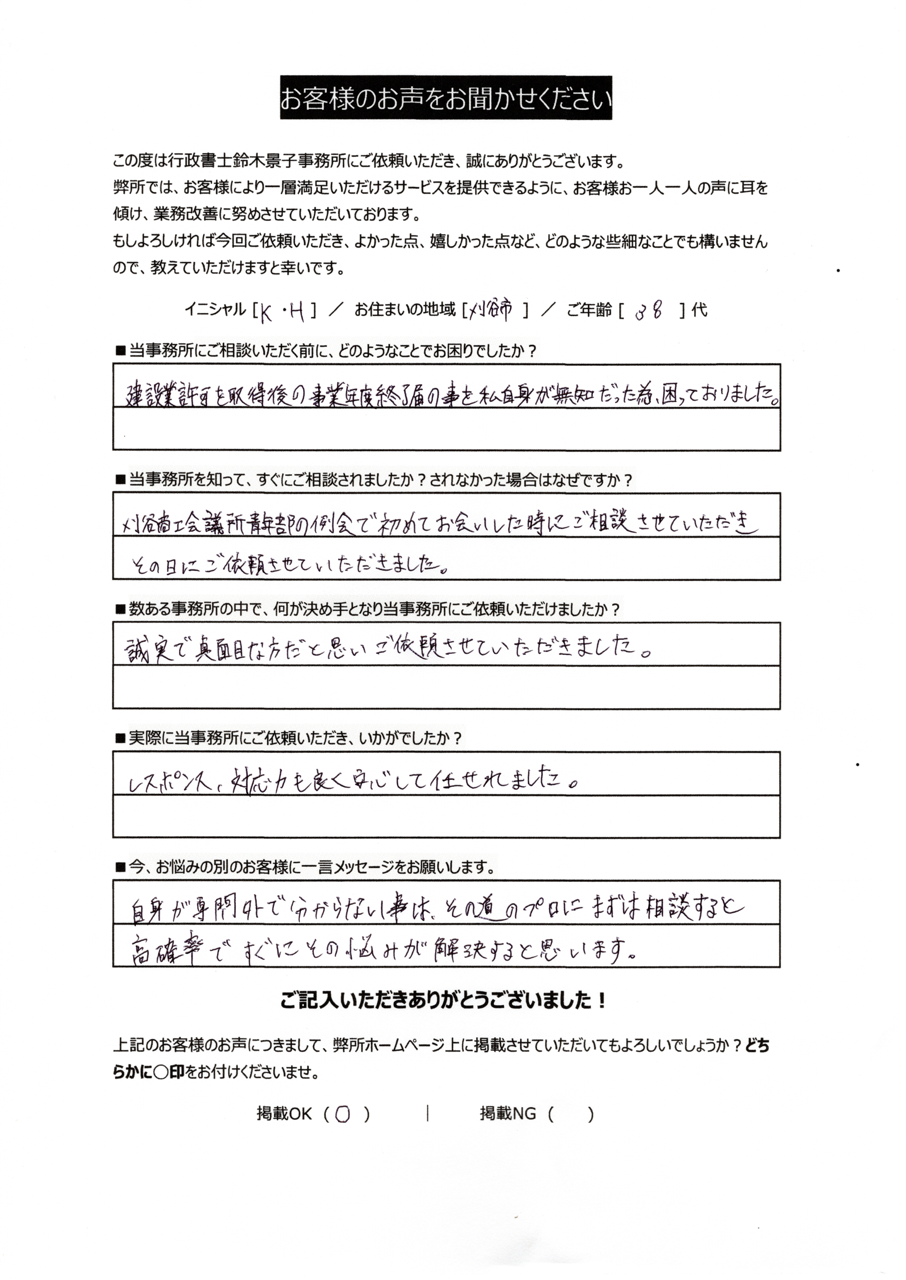 お客様のお声をお聞かせください
この度は行政書士鈴木景子事務所にご依頼いただき、誠にありがとうございます。
弊所では、お客様により一層満足いただけるサービスを提供できるように、お客様お一人一人の声に耳を
傾け、業務改善に努めさせていただいております。
もしよろしければ今回ご依頼いただき、よかった点、嬉しかった点など、どのような些細なことでも構いません
ので、教えていただけますと幸いです。
イニシャル [ K・H ] ／ お住まいの地域 [ 刈谷市 ] ／ ご年齢 [ 38 ] 代
■当事務所にご相談いただく前に、どのようなことでお困りでしたか？
建設業許可を取得後の事業年度終了届の事を私自身が無知だった為、困っておりました。
■当事務所を知って、すぐにご相談されましたか？されなかった場合はなぜですか？
刈谷商工会議所青年部の例会で初めてお会いした時にご相談させていただき
その日にご依頼させていただきました。
■数ある事務所の中で、何が決め手となり当事務所にご依頼いただけましたか？
誠実で真面目な方だと思いご依頼させていただきました。
■実際に当事務所にご依頼いただき、いかがでしたか？
レスポンス、対応力も良く安心して任せれました。
■今、お悩みの別のお客様に一言メッセージをお願いします。
自身が専門外で分からない事は、その道のプロにまずは相談すると
高確率ですぐにその悩みが解決すると思います。
ご記入いただきありがとうございました！
上記のお客様のお声につきまして、弊所ホームページ上に掲載させていただいてもよろしいでしょうか？どち
らかに〇印をお付けくださいませ。
掲載OK （ 〇 ） ｜ 掲載NG （ ）